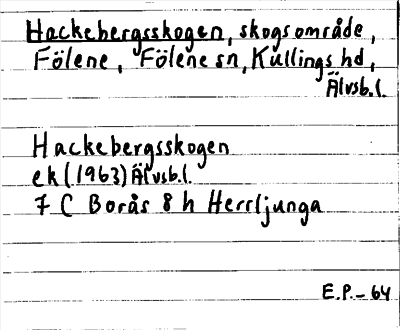 Hackebergsskogen, skogsområde,
Fölene, Fölene sn, Kullings hd,
Älvsb.l.
Hackebergsskogen
ek (1963) Älvsb.l.
7 C Borås 8 h Herrljunga
E.P.-64